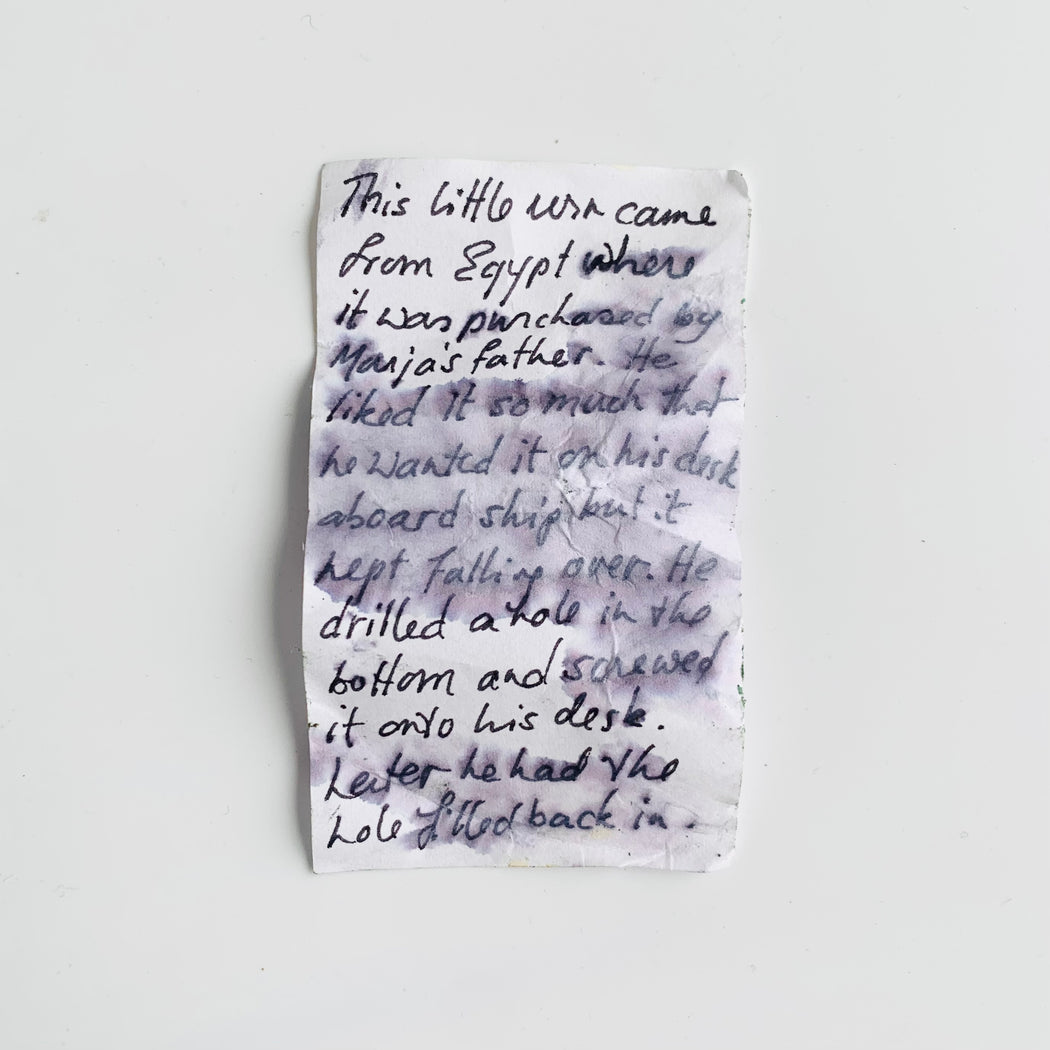 This little urn came
from Egypt where
it was purchased by
Marja's father. He
liked it so much that
he wanted it on his desk
aboard ship, but it
kept falling over. He
drilled a hole in the
bottom and screwed
it onto his desk.
Later he had the
hole filled back in.